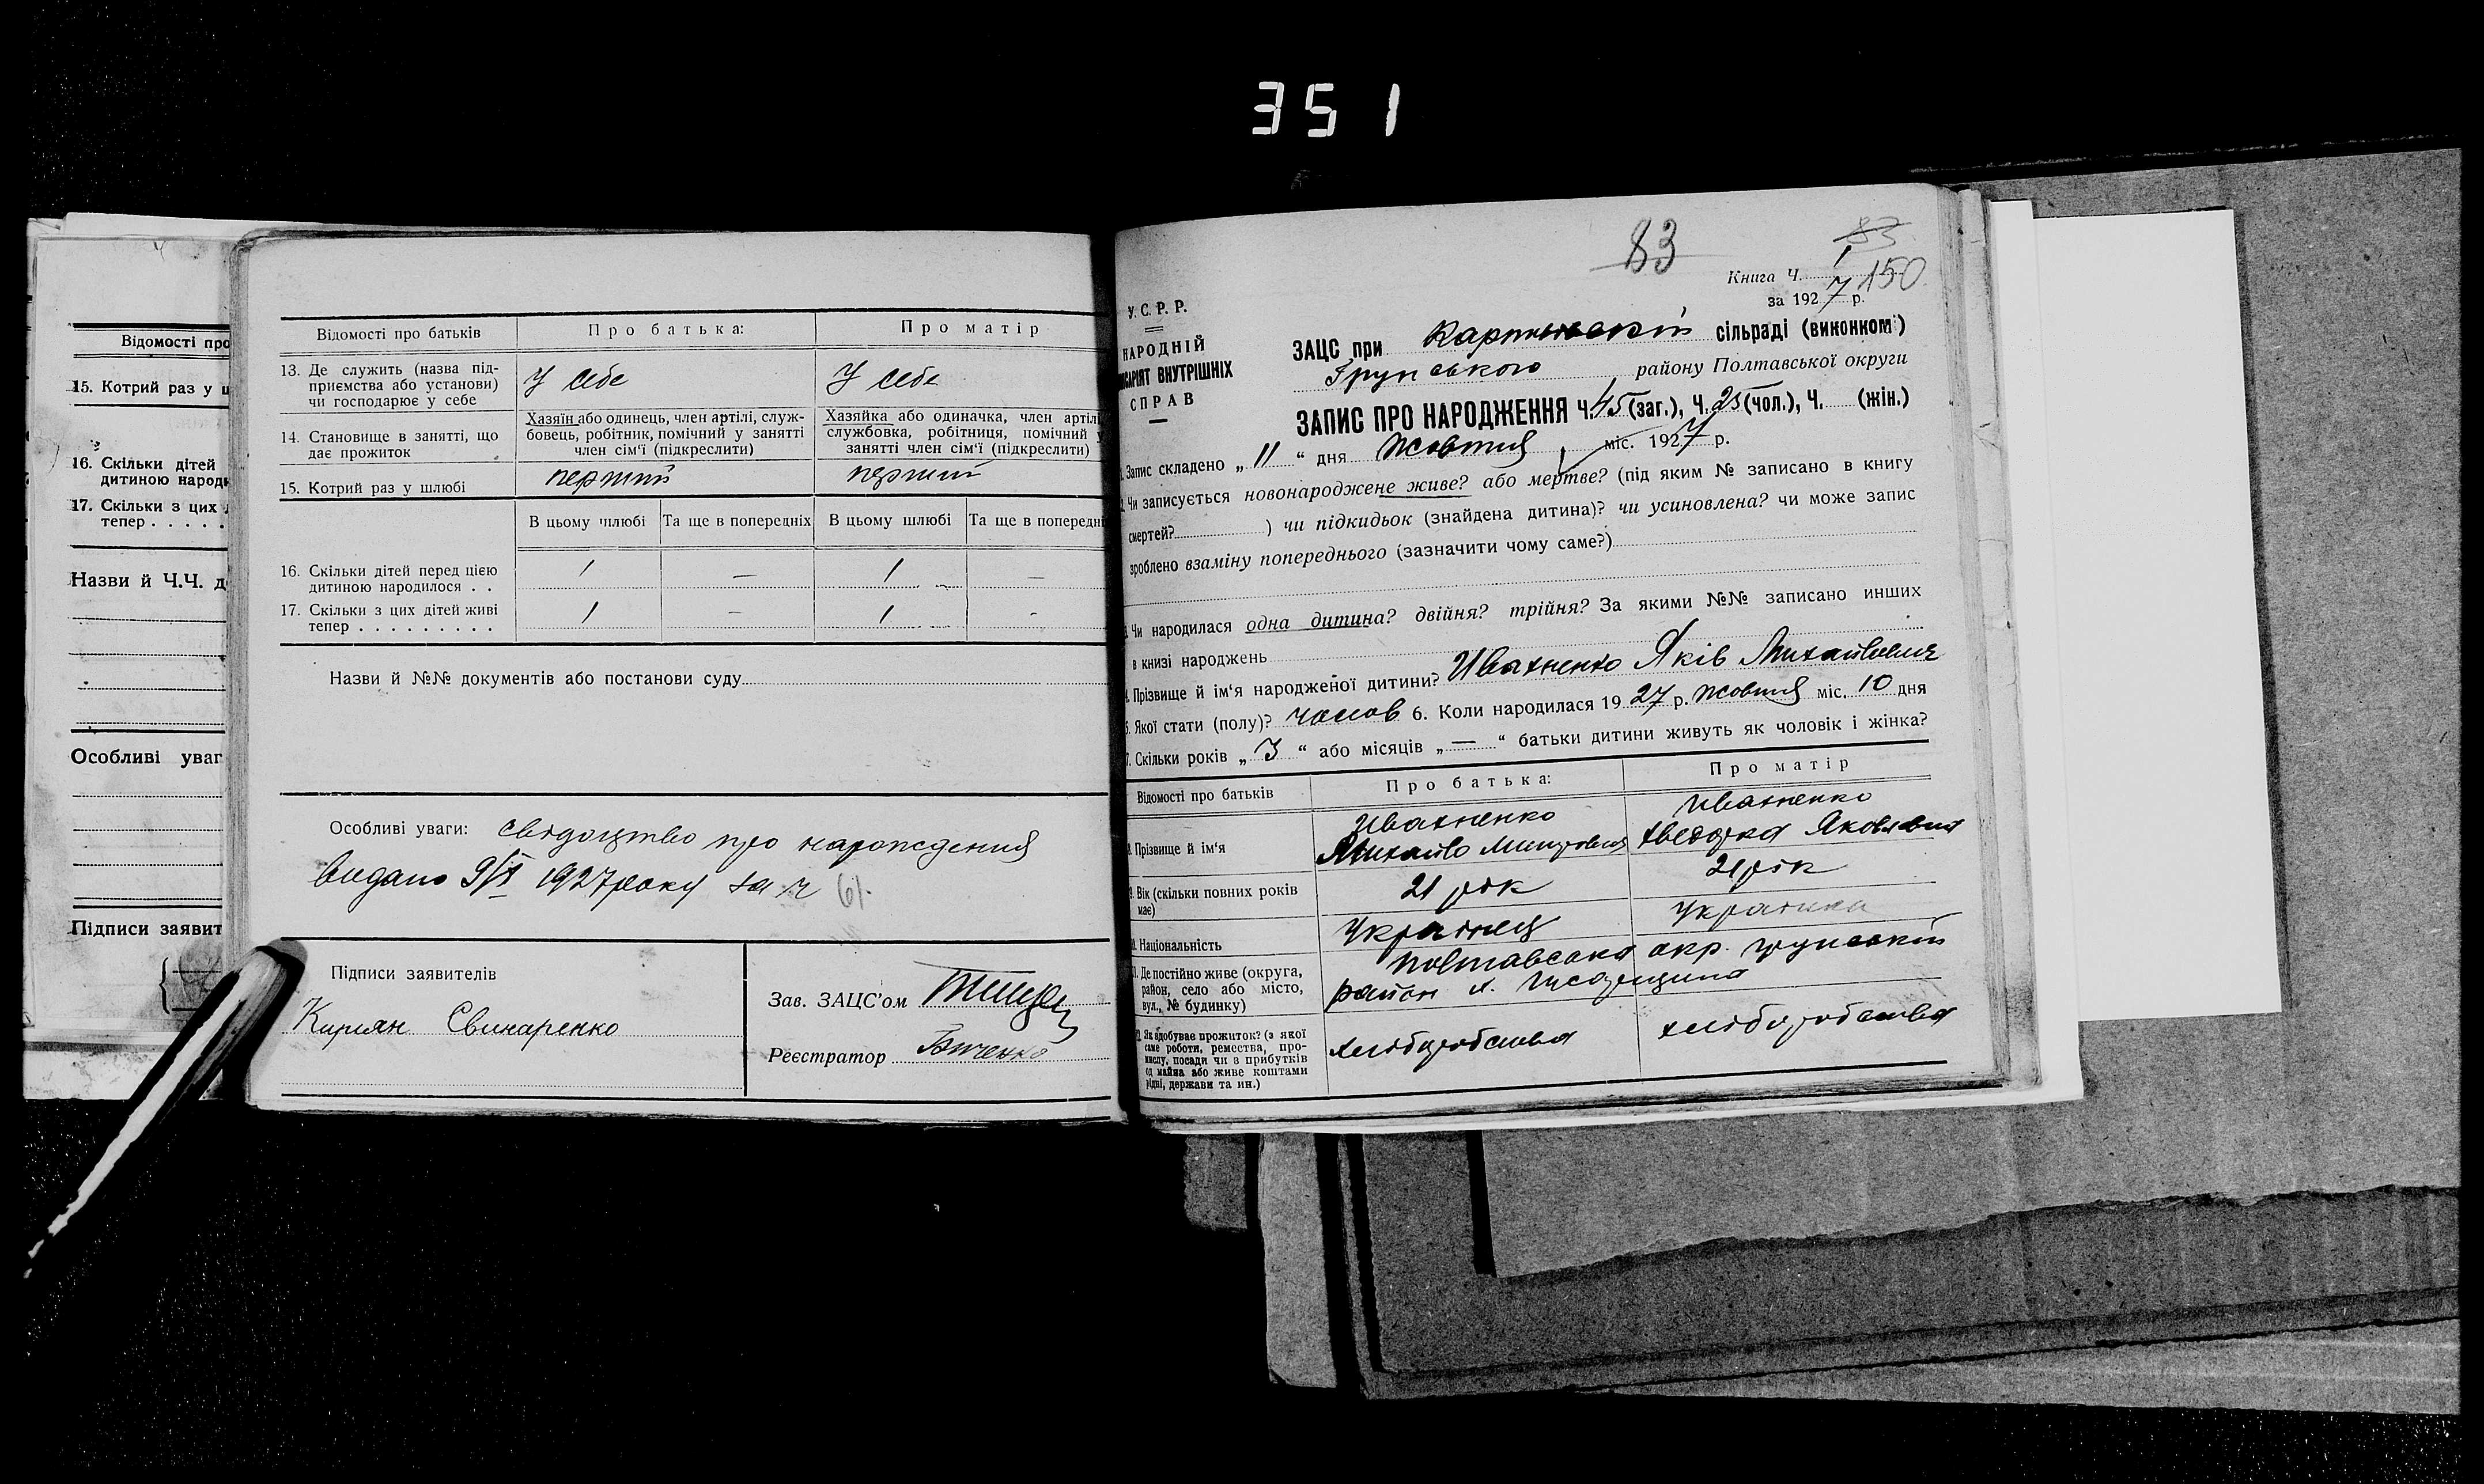 351
Відомості про
15. Котрий раз у ш
16. Скільки дітей
дитиною народ
17. Скільки з цих
тепер . . . . .
Назви й Ч.Ч. д
Особливі уваг
Підписи заявит
Відомості про батьків
Про батька:
Про матір
13. Де служить (назва під-
приємства або установи)
чи господарює у себе
У себе
У себе
14. Становище в занятті, що
дає прожиток
Хазяїн або одинець, член артілі, служ-
бовець, робітник, помічний у занятті
член сім'ї (підкреслити)
Хазяйка або одиначка, член артілі
службовка, робітниця, помічний у
занятті член сім'ї (підкреслити)
15. Котрий раз у шлюбі
перший
перший
В цьому шлюбі
Та ще в попередніх
В цьому шлюбі
Та ще в попередні
16. Скільки дітей перед цією
дитиною народилося . .
1 — 1 —
17. Скільки з цих дітей живі
тепер . . . . . . . . .
1 - 1 -
Назви й №№ документів або постанови суду
Особливі уваги: свідоцтво про народження
Видано 9/X 1927 року за ч 61
Підписи заявителів
Кириян Свинаренко
Зав. ЗАЦС'ом
Реєстратор
83
83
Книга Ч. 1
150
за 1927 р.
У.С.Р.Р.
НАРОДНІЙ
САРІЯТ ВНУТРІШНІХ
СПРАВ
ЗАЦС при сільраді (виконком)
Грунського району Полтавської округи
ЗАПИС ПРО НАРОДЖЕННЯ Ч. 45 (заг.), Ч. 25 (чол.), Ч. (жін.)
Запис складено „ 11 “ дня жовтня міс. 1927 р.
Чи записується новонароджене живе? або мертве? (під яким № записано в книгу
смертей? ) чи підкидьок (знайдена дитина)? чи усиновлена? чи може запис
зроблено взаміну попереднього (зазначити чому саме?)
Чи народилася одна дитина? двійня? трійня? За якими №№ записано инших
в книзі народжень
4. Прізвище й ім'я народженої дитини? Ивахненко Яків Михайлович
5. Якої стати (полу)? 6. Коли народилася 1927 р. жовтня міс. 10 дня
7. Скільки років „ 3 “ або місяців „ — “ батьки дитини живуть як чоловік і жінка?
Відомості про батьків
Про батька:
Про матір
8. Прізвище й ім'я
Ивахненко
Михайло
Ивахненко
Яковлевна
9. Вік (скільки повних років
має)
21 рік
21 рік
Національність
Українец
Українка
Де постійно живе (округа,
район, село або місто,
вул., № будинку)
Полтавська окр. Грунський
район х.
Як здобуває прожиток? (з якої
саме роботи, ремества, про-
мислу, посади чи з прибутків
од майна або живе коштами
рідні, держави та ин.)
хліборобства
хліборобства